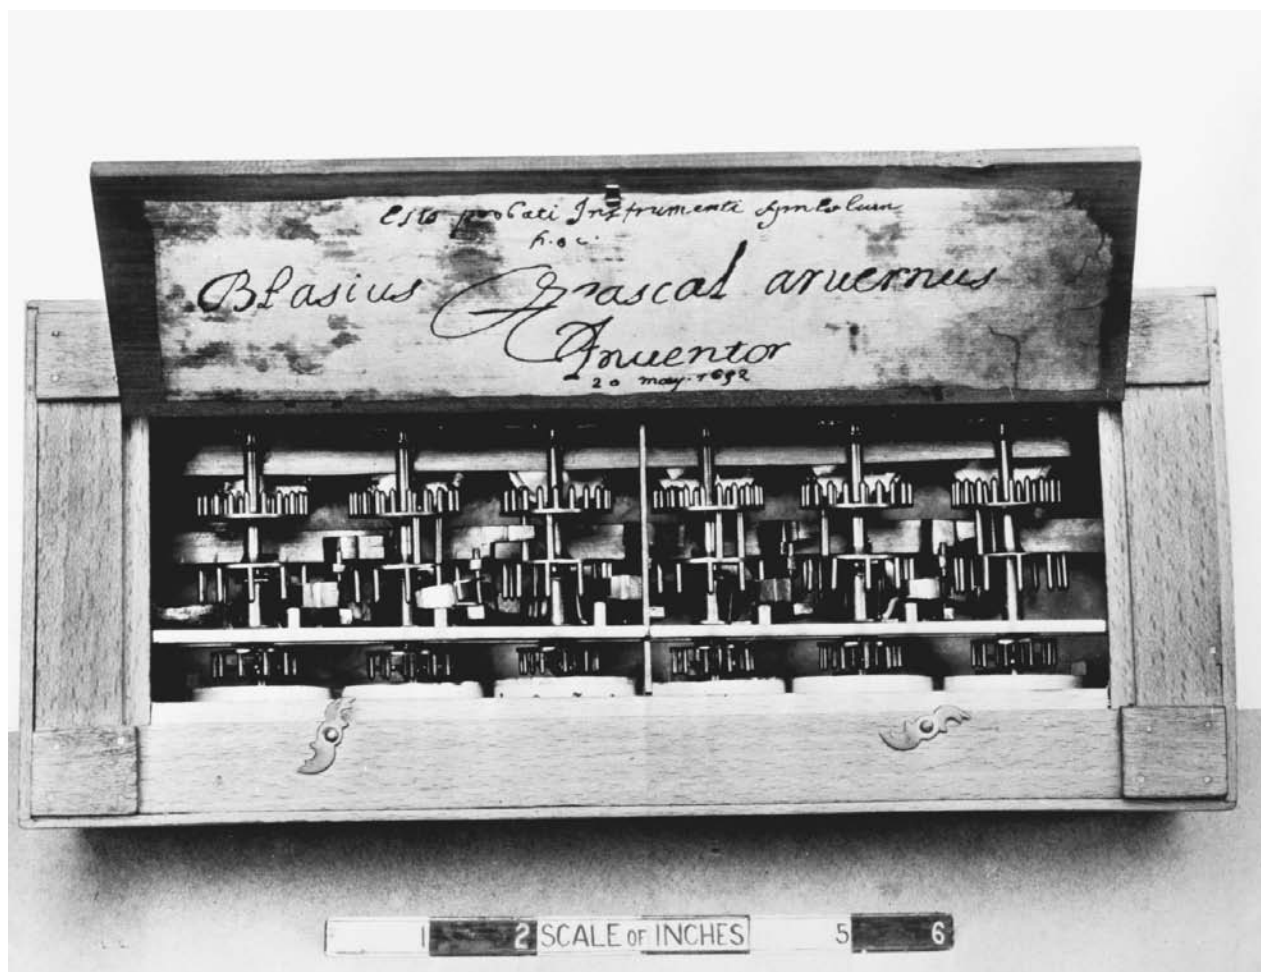 Esto probati Instrumenti symbolum
hoc.
Blasius Pascal aruernus
Inuentor
20 may. 1652
1 2 SCALE OF INCHES 5 6